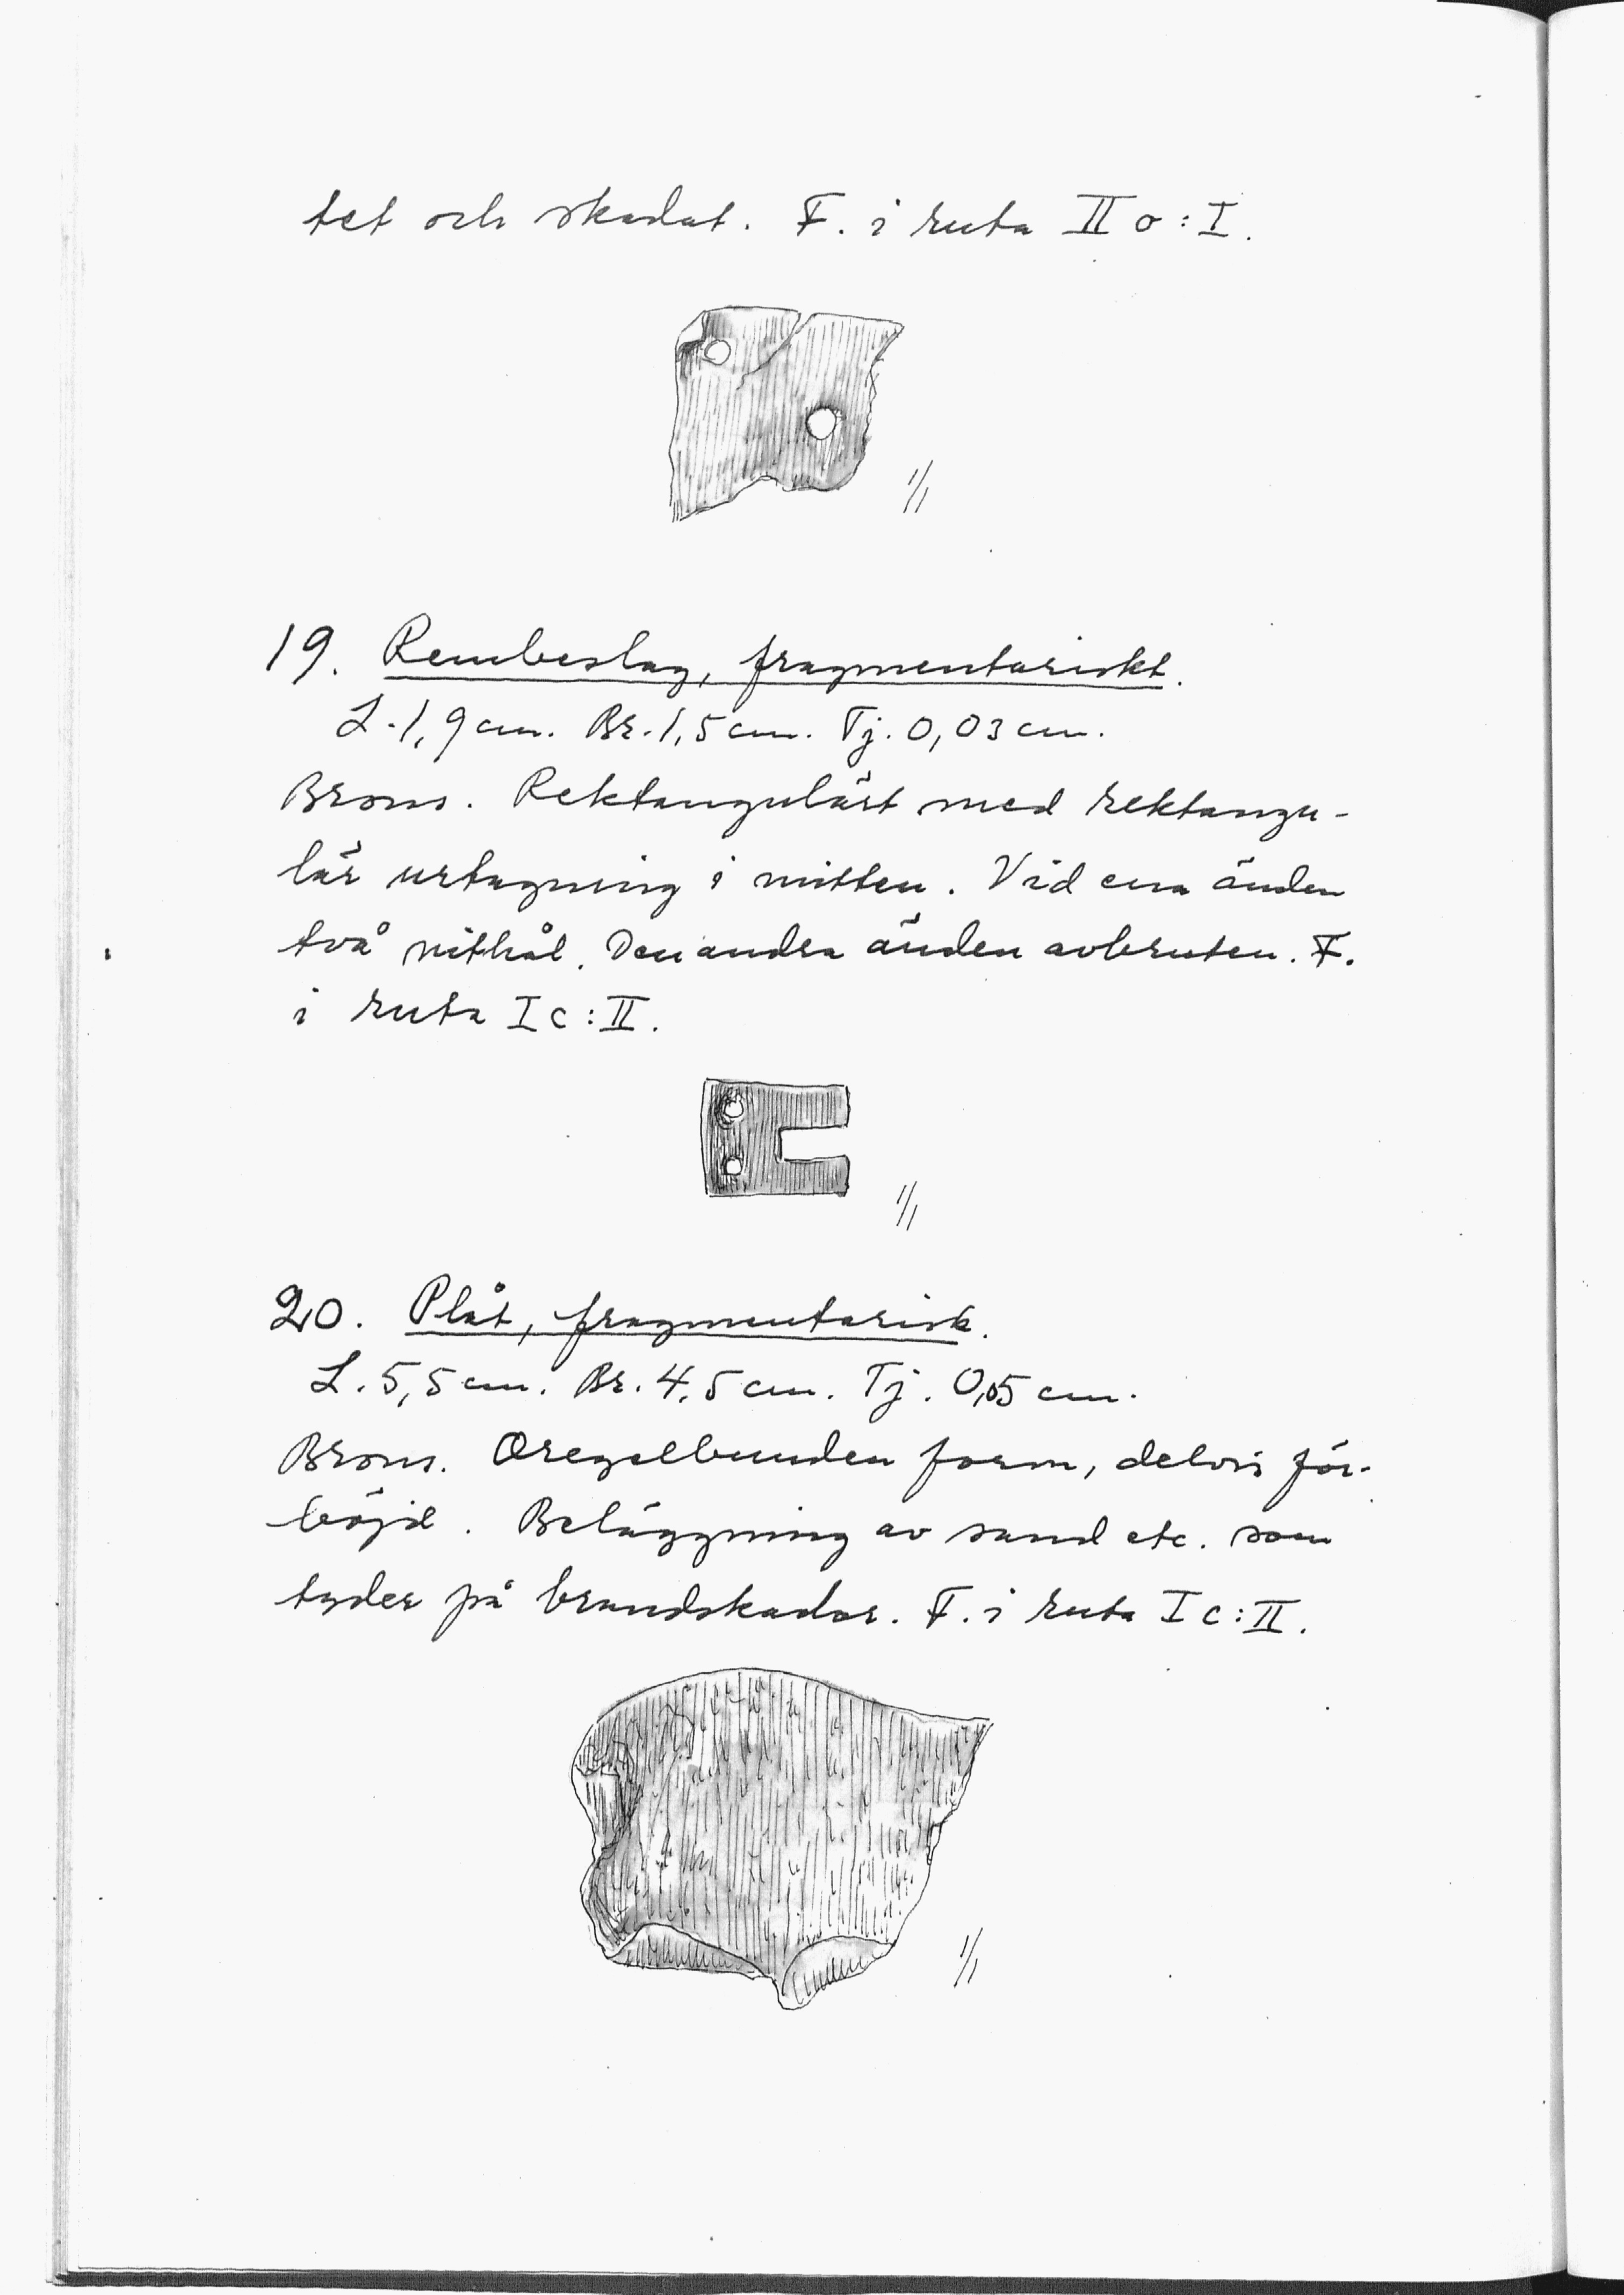 tet och skadat. F. i ruta II o : I.
1/1
19. Rembeslag, fragmentariskt.
L. 1,9 cm. Br. 1,5 cm. Tj. 0,03 cm.
Brons. Rektangulärt med rektangu-
lär urtagning i mitten. Vid ena änden
två nithål. Den andra änden avbruten. F.
i ruta I c : II.
1/1
20. Plåt, fragmentarisk.
L. 5,5 cm. Br. 4,5 cm. Tj. 0,05 cm.
Brons. Oregelbunden form, delvis för-
böjd. Beläggning av sand etc. som
tyder på brandskador. F. i ruta I c : II.
1/1